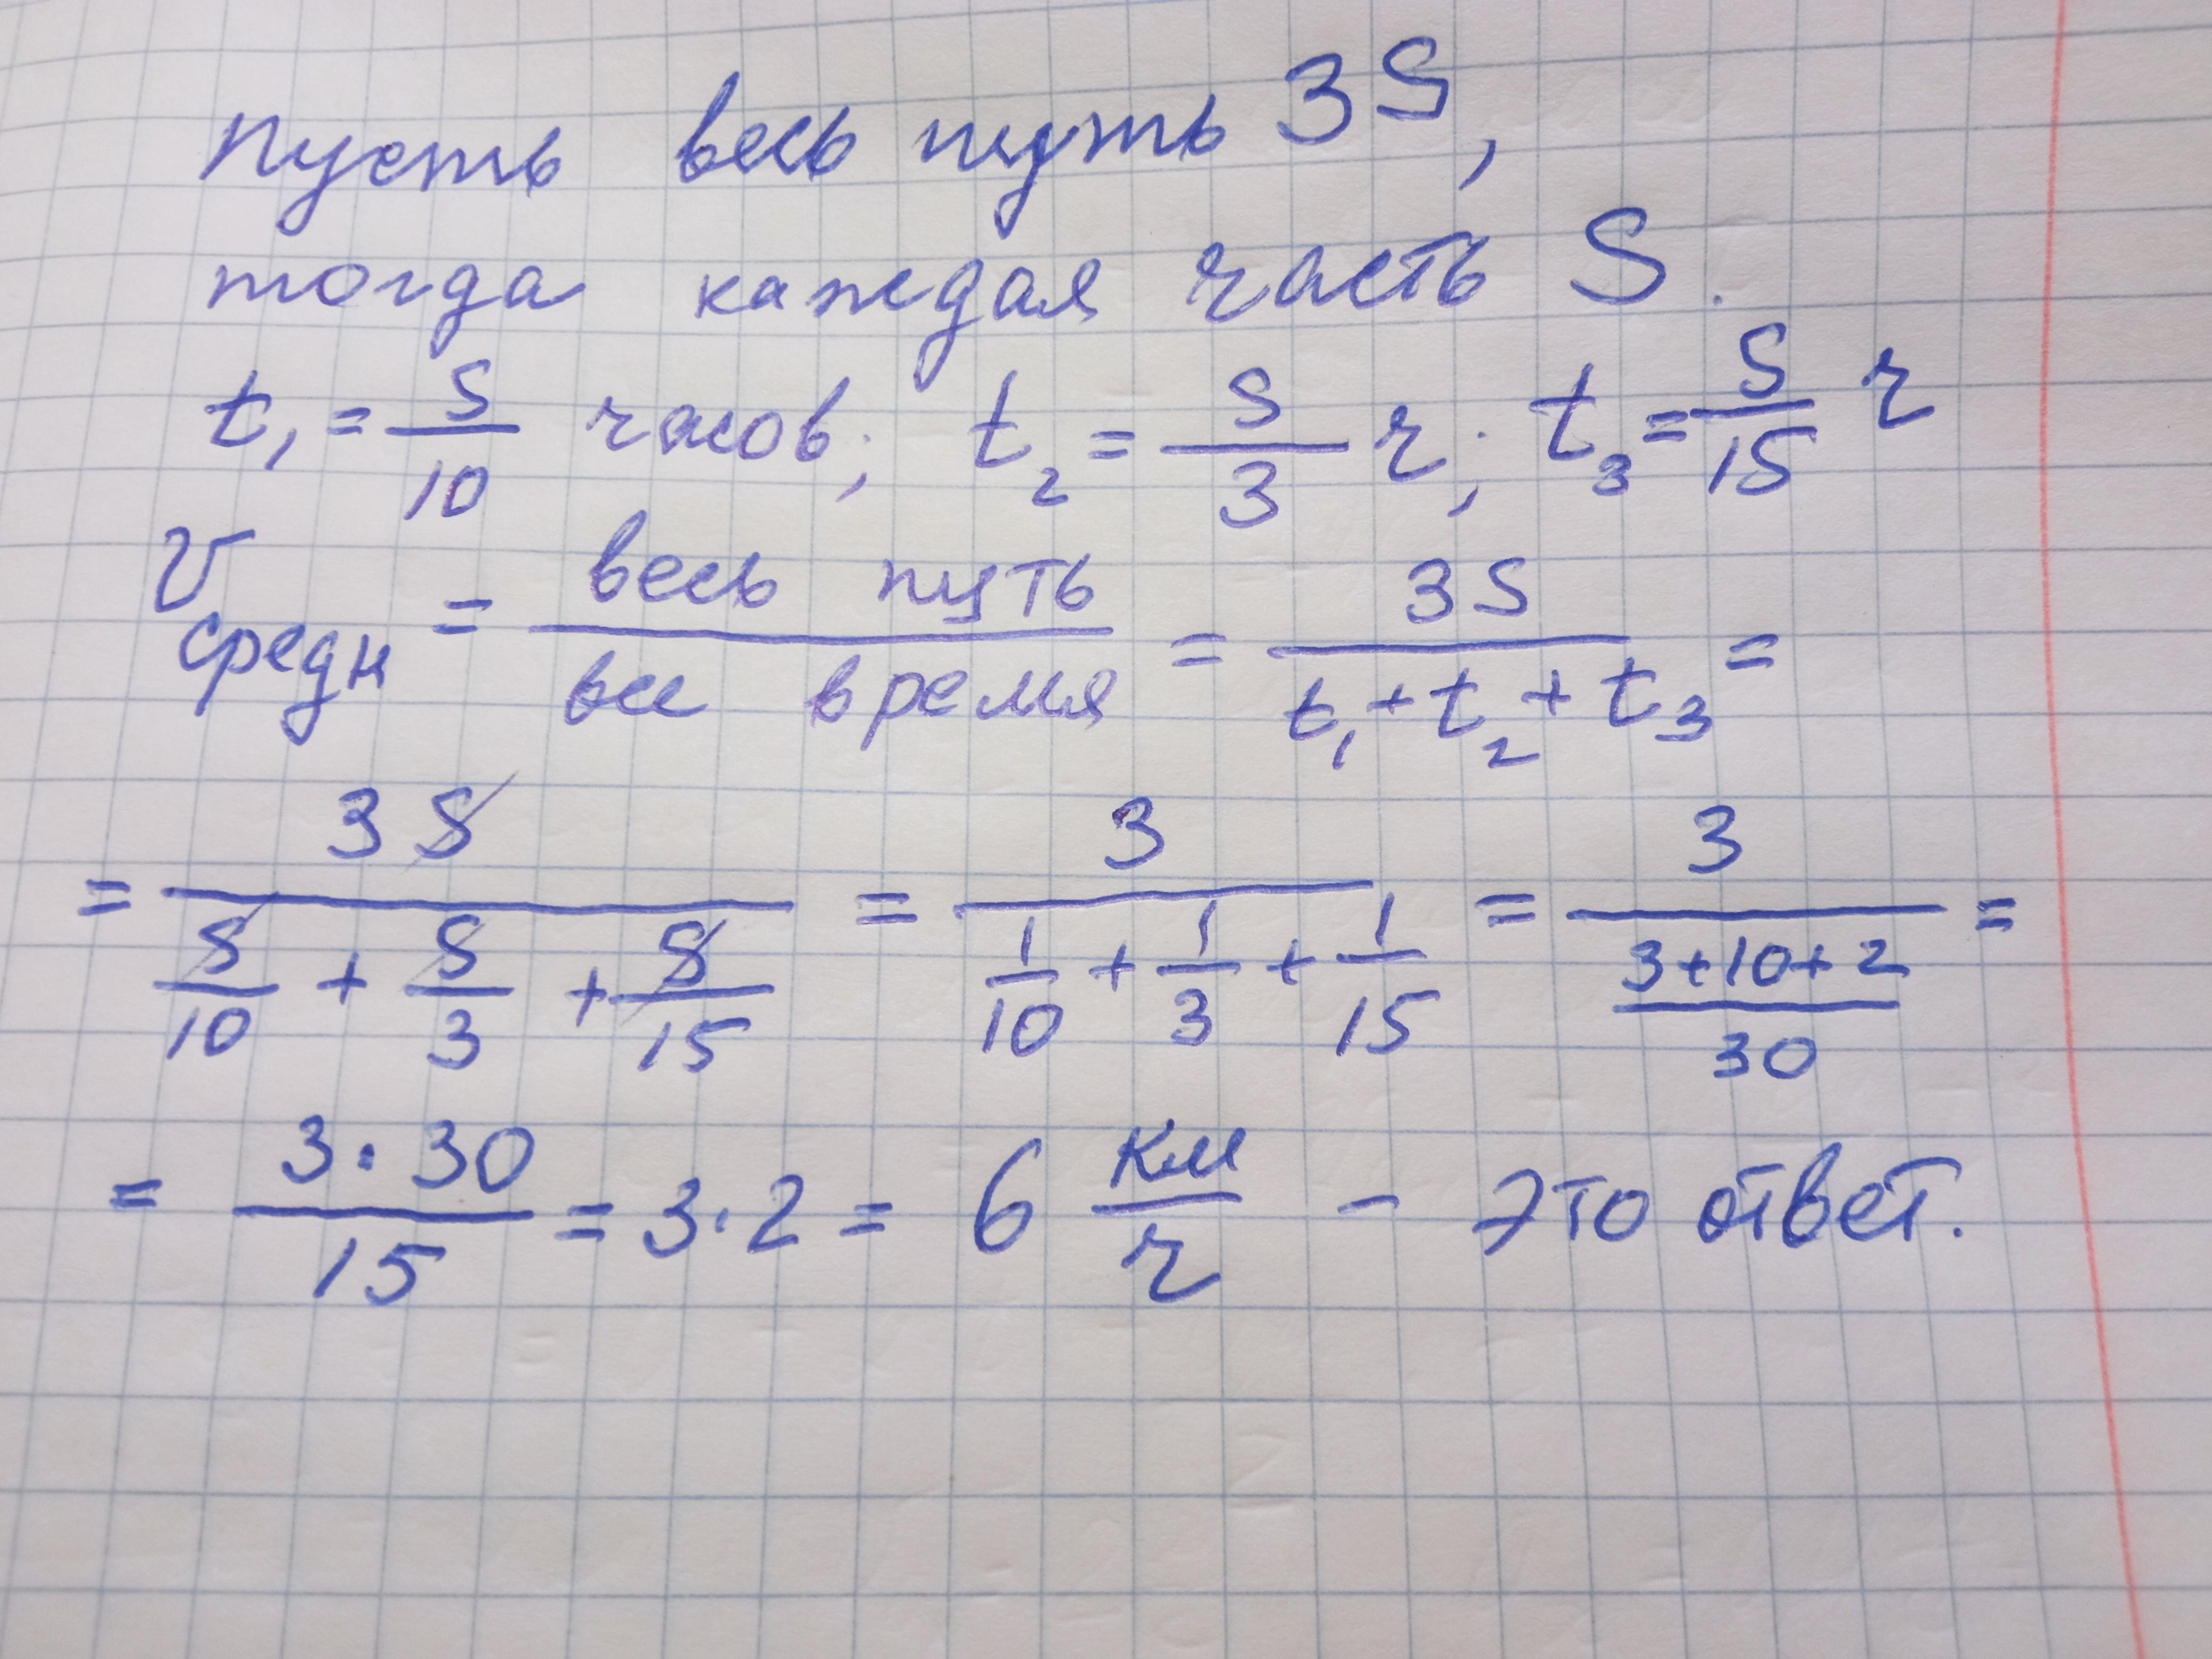 Пусть весь путь 3S,
тогда каждая часть S.
t₁ = S/10 часов; t₂ = S/3 ч; t₃ = S/15 ч
V средн = весь путь / все время = 3S / (t₁ + t₂ + t₃) =
= 3S / (S/10 + S/3 + S/15) = 3 / (1/10 + 1/3 + 1/15) = 3 / ((3+10+2)/30) =
= 3·30 / 15 = 3·2 = 6 км/ч – это ответ.